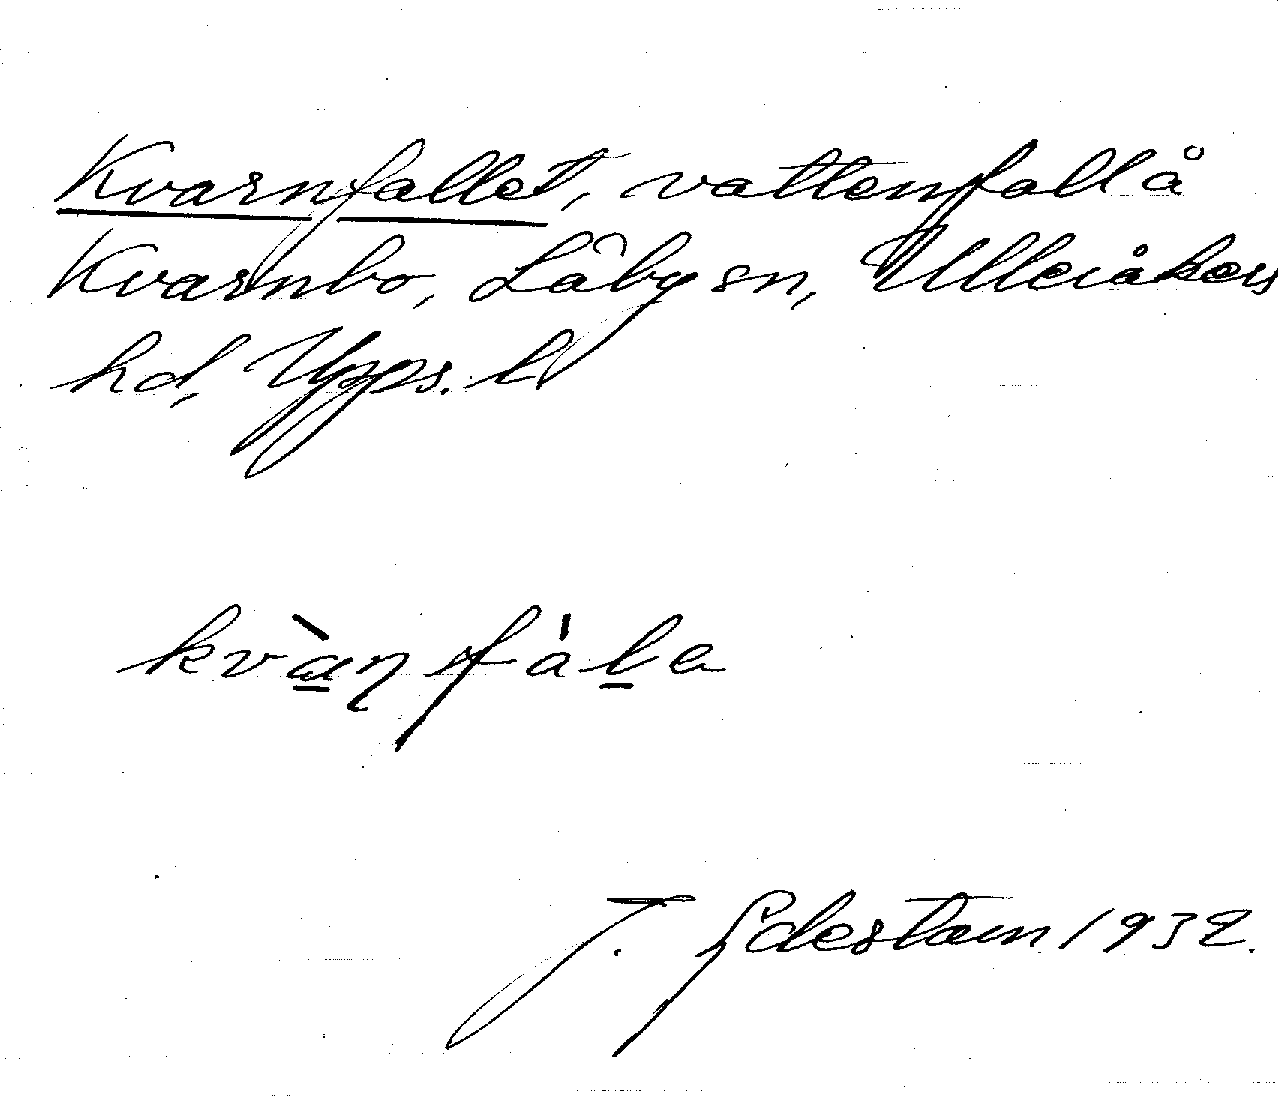 Kvarnfallet, vattenfall å
Kvarnbo, Läby sn, Ulleråkers
hd, Upps. l.
kvàn̥fála
J. Edestam 1932.